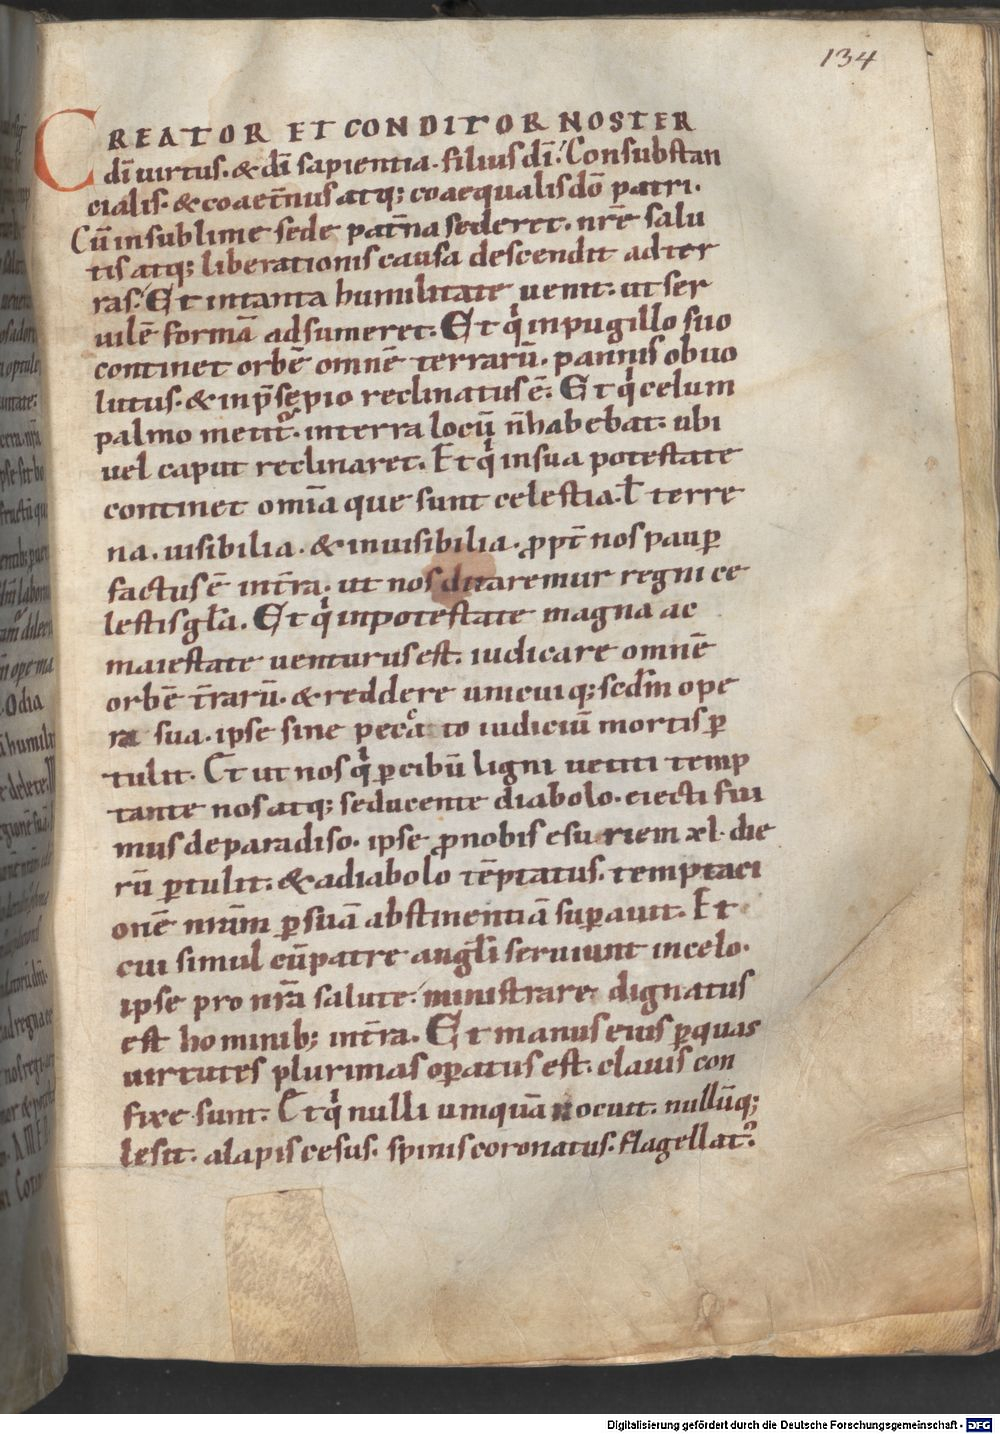 134
CREATOR ET CONDITOR NOSTER
di̅ uirtus. & di̅ sapientia. filius di̅. Consubstan
cialis. & coaet̅nus atq; coaequalis do̅ patri.
Cu̅ in sublime sede pat̅na sederet. nr̅e salu
tis atq; liberationis causa descendit ad ter
ras. Et in tanta humilitate uenit. ut ser
uile̅ forma̅ adsumeret. Et qͥ in pugillo suo
continet orbe̅ omne̅ terraru̅. pannis obuo
lutus. & in p̅sepio reclinatus e̅. Et qͥ celum
palmo metit᷒. in terra locu̅ n̅ habebat. ubi
uel caput reclinaret. Et qͥ in sua potestate
continet om̅ia que sunt celestia. ł terre
na. uisibilia. & inuisibilia. ꝓpt̅ nos paup̲
factus e̅ in t̅ra. ut nos ditaremur regni ce
lestis gl̅a. Et qͥ in potestate magna ac
maiestate uenturus est. iudicare omne̅
orbe̅ t̅raru̅. & reddere unicuiq; scdm̅ ope
ra sua. ipse sine peccato iudiciu̅ mortis ꝑ
tulit. Et ut nos qͥ ꝑ cibu̅ ligni uetiti temp
tante nos atq; seducente diabolo. eiecti fui
mus de paradiso. ipse ꝓ nobis esuriem xl. die
ru̅ ꝑtulit. & a diabolo te̅ptatus. temptaci
one̅ nr̅am ꝑ sua̅ abstinentia̅ suꝑauit. Et
cui simul cu̅ patre angl̅i seruiunt in celo.
ipse pro nr̅a salute. ministrare dignatus
est hominib; in t̅ra. Et manus eius ꝑ quas
uirtutes plurimas oꝑatus est. clauis con
fixe sunt. Et qͥ nulli umqua̅ nocuit. nullu̅q;
lesit. alapis cesus. spinis coronatus. flagellat᷒.
Digitalisierung gefördert durch die Deutsche Forschungsgemeinschaft - DFG